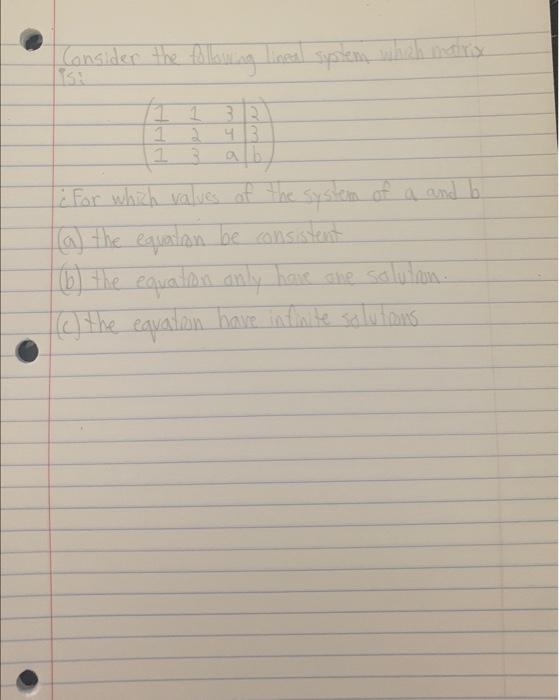 Consider the following lineal system which matrix
is:
1 1 3 | 2
1 2 4 | 3
1 3 a | b
¿For which values of the system of a and b
(a) the equation be consistent
(b) the equation only have one solution.
(c) the equation have infinite solutions